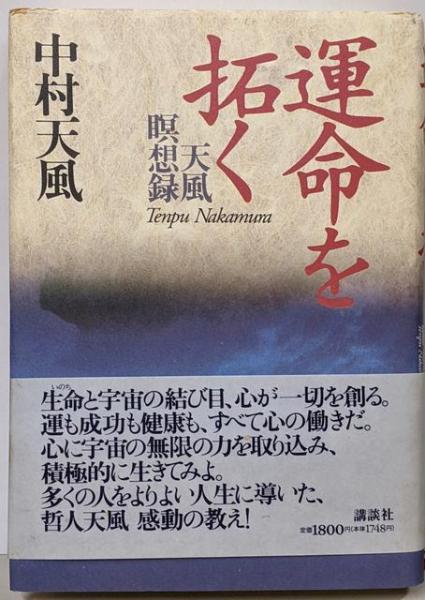 運命を
拓く
天風
瞑想録
Tenpu Nakamura
中村天風
いのち
生命と宇宙の結び目、心が一切を創る。
運も成功も健康も、すべて心の働きだ。
心に宇宙の無限の力を取り込み、
積極的に生きてみよ。
多くの人をよりよい人生に導いた、
哲人天風 感動の教え!
講談社
定価1800円(本体1748円)